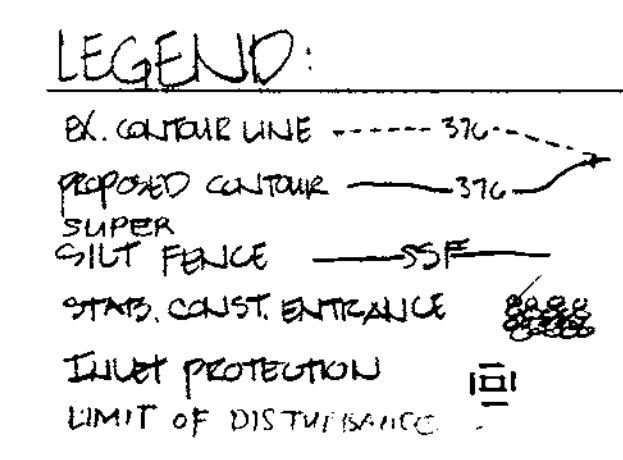 LEGEND:
EX. CONTOUR LINE ------ 376---
PROPOSED CONTOUR 376
SUPER
SILT FENCE SSF
STAB. CONST. ENTRANCE
INLET PROTECTION
LIMIT OF DISTURBANCE